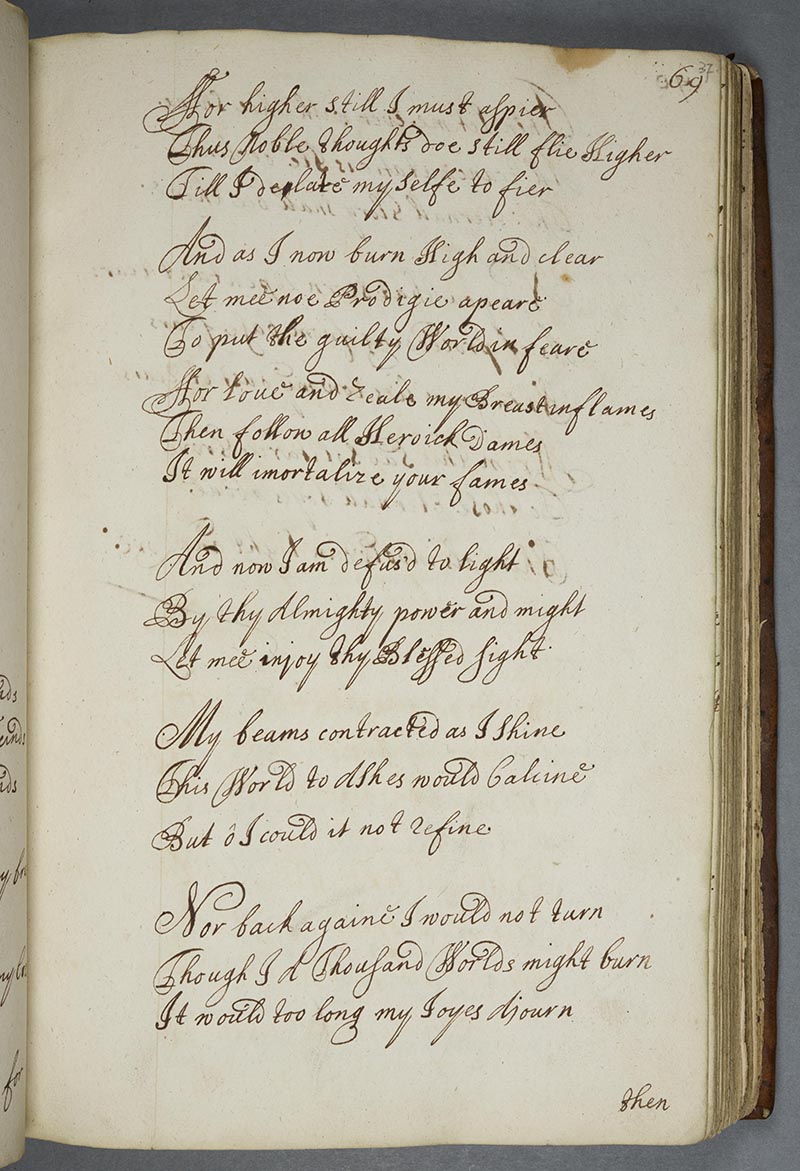 37
69
For higher still I must aspier
Thus Noble thoughts doe still flie Higher
Till I delate my selfe to fier
And as I now burn High and clear
Let mee noe Prodigie apeare
To put the guilty World in feare
For Love and Zeale my Breast inflames
Then follow all Heroick Dames
It will imortalize your fames
And now I am defus'd to light
By thy Almighty power and might
Let mee injoy thy Blessed sight
My beams contracted as I shine
This World to Ashes would Calcine
But ô I could it not refine
Nor back againe I would not turn
Though I A Thousand Worlds might burn
It would too long my Joyes Ajourn
then